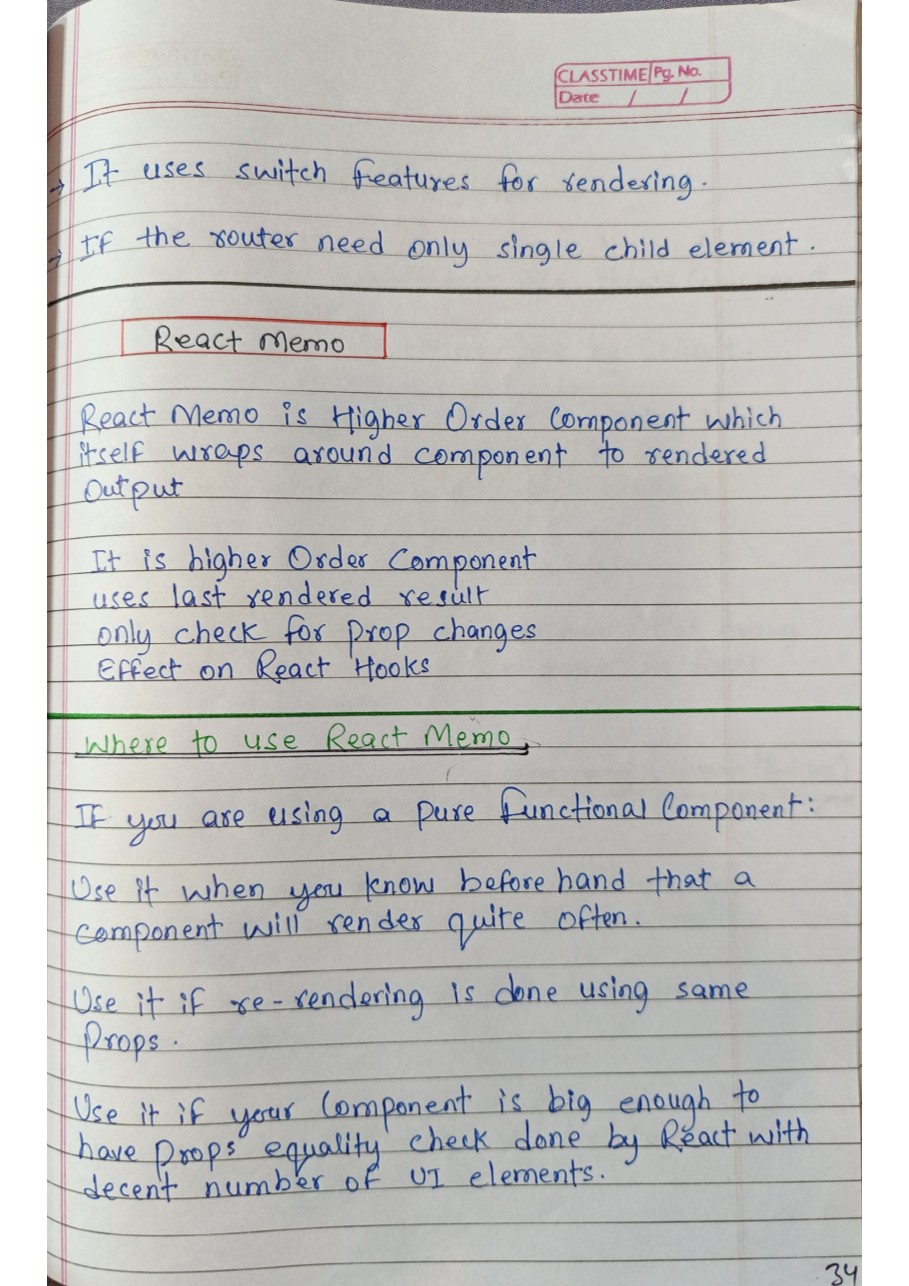 CLASSTIME Pg. No.
Date / /
→ It uses switch features for rendering.
→ If the router need only single child element.
React Memo
React Memo is Higher Order Component which
itself wraps around component to rendered
Output
It is higher Order Component
uses last rendered result
only check for prop changes
Effect on React Hooks
Where to use React Memo,
If you are using a pure functional Component:
Use it when you know before hand that a
component will render quite often.
Use it if re-rendering is done using same
Props.
Use it if your Component is big enough to
have props equality check done by React with
decent number of UI elements.
34